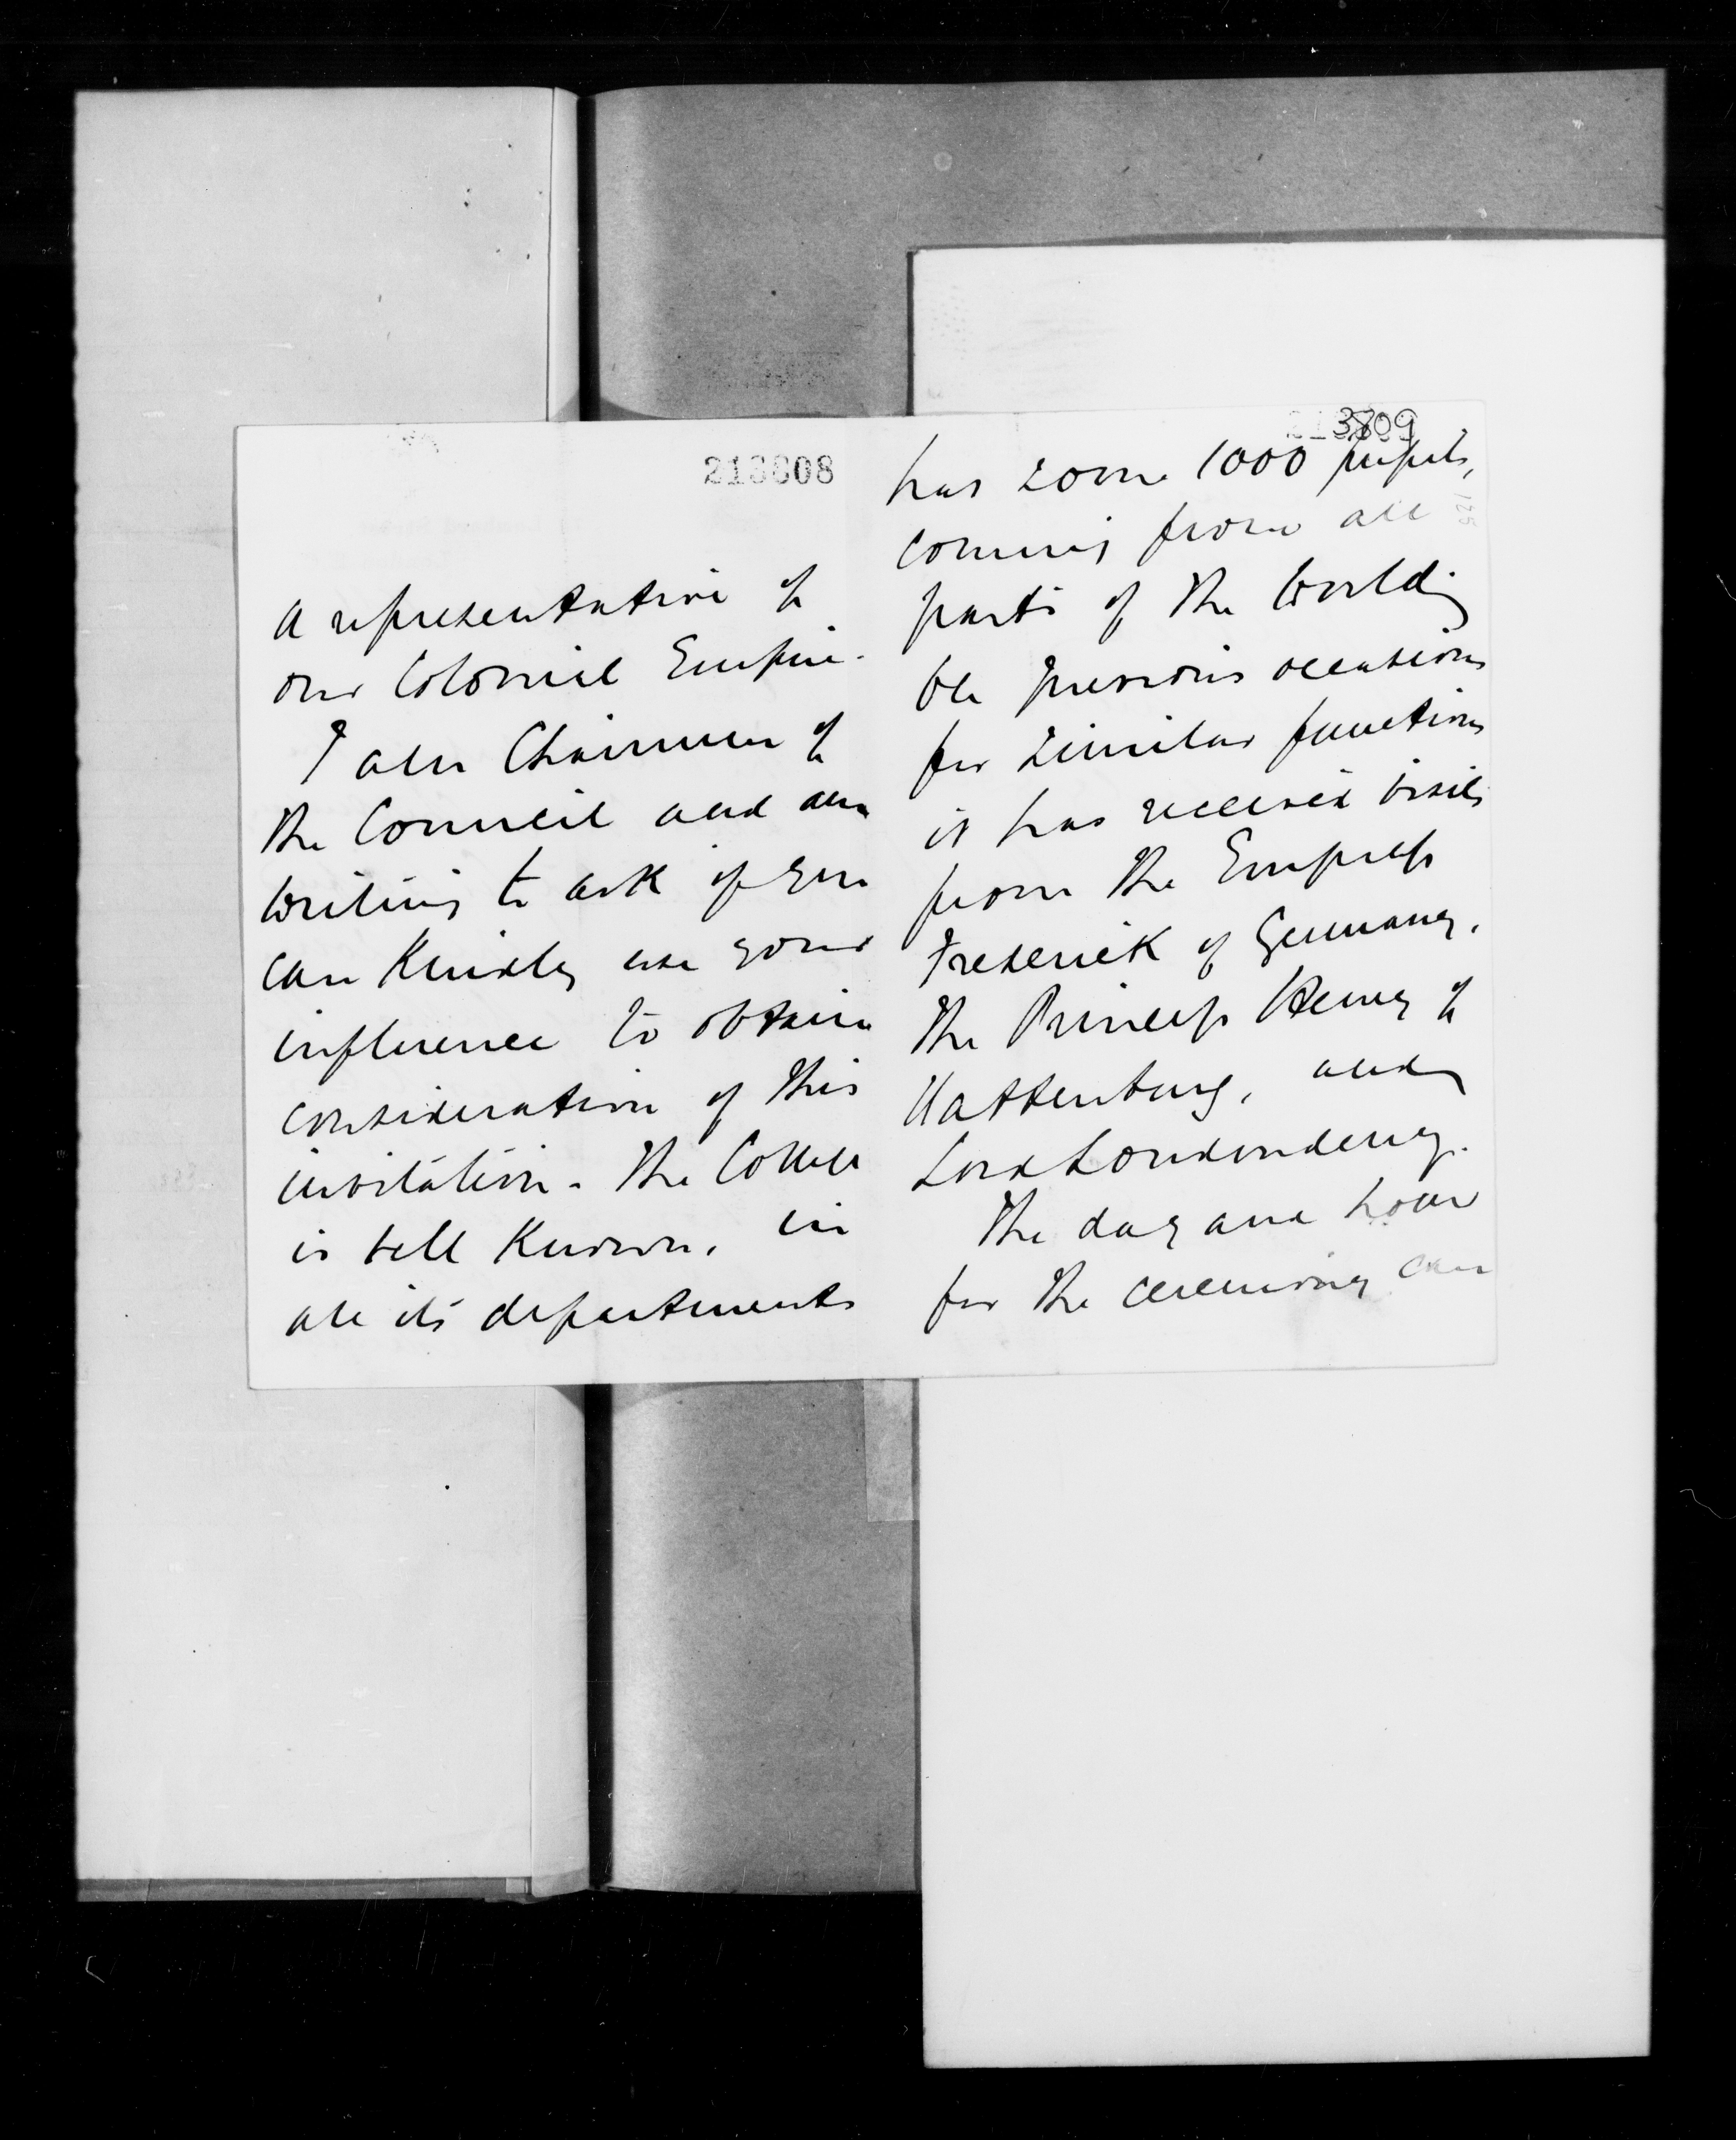 213808
a representative of
our Colonial Empire.
I am Chairman of
the Council and am
writing to ask if you
can kindly use your
influence to obtain
consideration of this
invitation. The College
is well known, in
all its departments
3809
has some 1000 pupils,
coming from all
parts of the world;
On previous occasions
for similar functions
it has received visits
from the Empress
Frederick of Germany,
the Princess Henry of
Battenburg, and
Lord Londonderry.
The day and hour
for the ceremony can